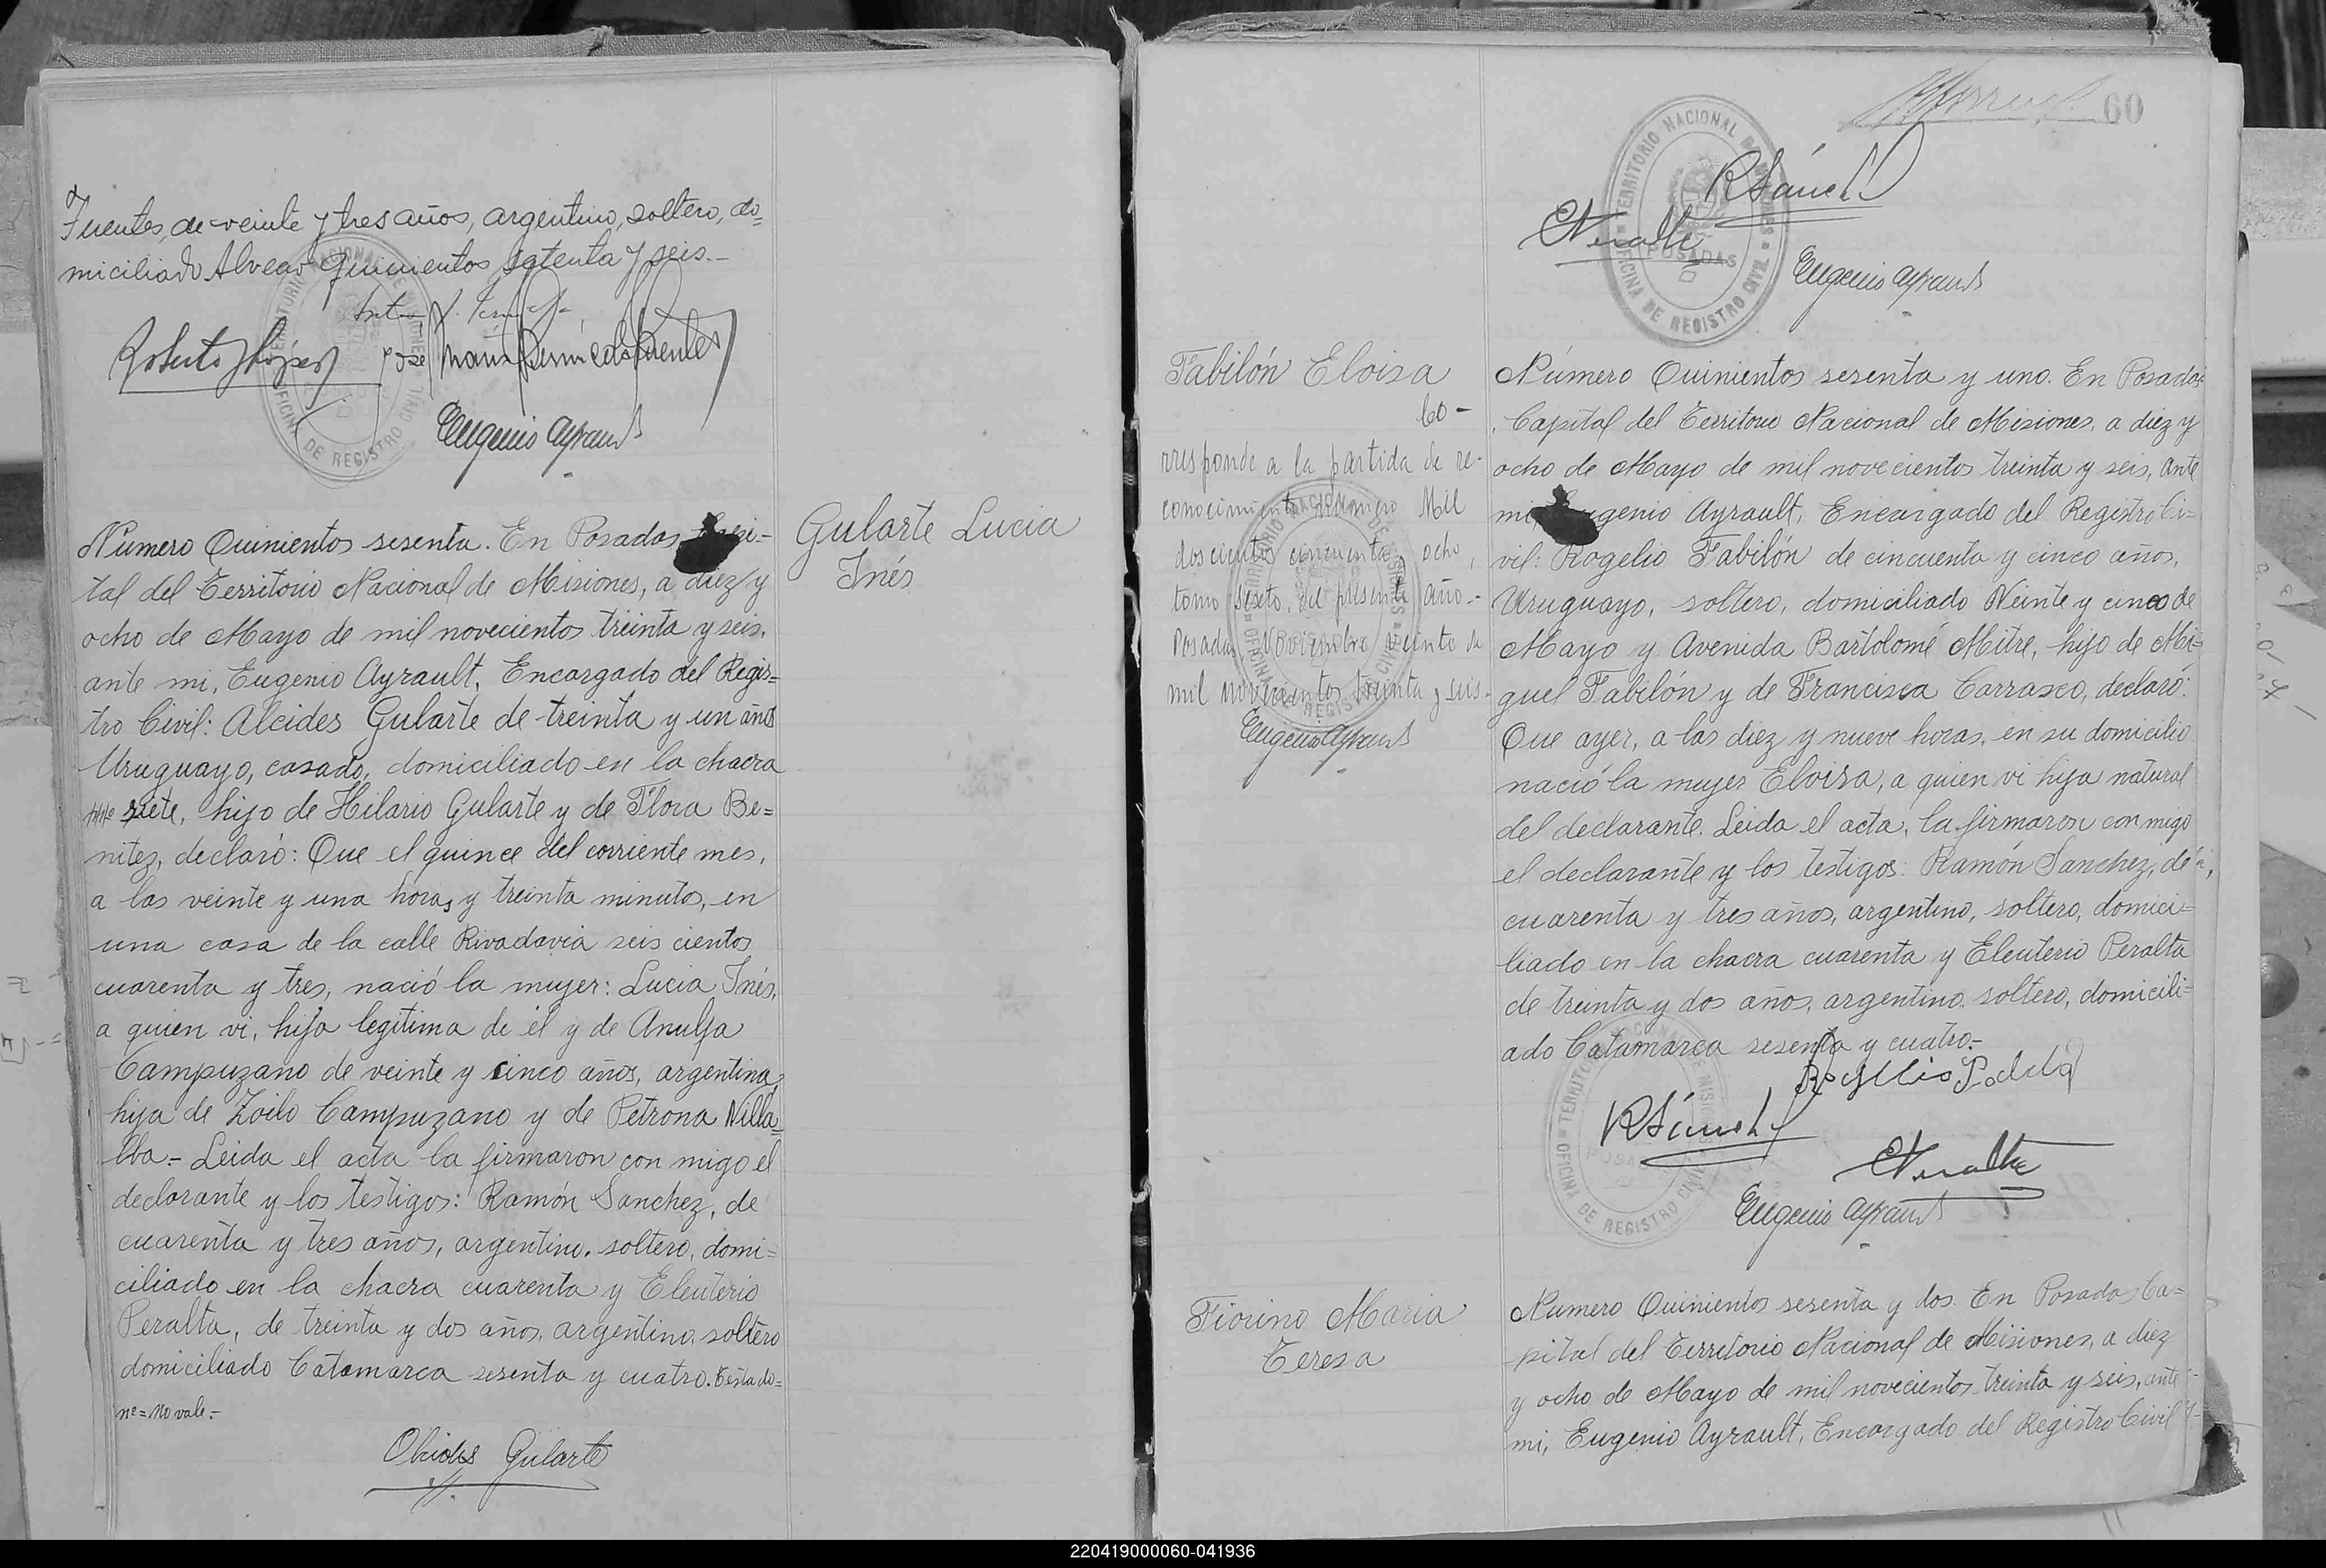 Fuentes, de veinte y tres años, argentino, soltero, do=
miciliado Alvear Quinientos setenta y seis.-
Roberto López José María Fuentes
Eugenio Ayrault
Número Quinientos sesenta. En Posadas,
tal del Territorio Nacional de Misiones, a diez y
ocho de Mayo de mil novecientos treinta y seis,
ante mi, Eugenio Ayrault, Encargado del Regis=
tro Civil: Alcides Gularte de treinta y un años
Uruguayo, casado, domiciliado en la chacra
siete, hijo de Hilario Gularte y de Flora Be=
nitez, declaró: Que el quince del corriente mes,
a las veinte y una horas y treinta minutos, en
una casa de la calle Rivadavia seis cientos
cuarenta y tres, nació la mujer: Lucia Inés,
a quien vi, hija legitima de él y de Anulfa
Campuzano de veinte y cinco años, argentina,
hija de Zoilo Campuzano y de Petrona Villa=
lba.- Leida el acta la firmaron con migo el
declarante y los testigos: Ramón Sanchez, de
cuarenta y tres años, argentino, soltero, domi=
ciliado en la chacra cuarenta y Eleuterio
Peralta, de treinta y dos años, argentino, soltero
domiciliado Catamarca sesenta y cuatro. Testado=
nº= no vale.-
Alcides Gularte
Gularte Lucia
Inés
60
TERRITORIO NACIONAL DE MISIONES
POSADAS
OFICINA DE REGISTRO CIVIL
RSánchez
EPeralta
Eugenio Ayrault
Fabilón Eloisa
Co-
rresponde a la partida de re-
conocimiento número Mil
doscientos cincuenta y ocho,
tomo sexto, del presente año.-
Posadas Noviembre veinte de
mil novecientos treinta y seis-
Eugenio Ayrault
Número Quinientos sesenta y uno. En Posadas
Capital del Territorio Nacional de Misiones, a diez y
ocho de Mayo de mil novecientos treinta y seis, ante
mi, Eugenio Ayrault, Encargado del Registro Ci=
vil: Rogelio Fabilón de cincuenta y cinco años,
Uruguayo, soltero, domiciliado Veinte y cinco de
Mayo y Avenida Bartolomé Mitre, hijo de Mi=
guel Fabilón y de Francisca Carrasco, declaró:
Que ayer, a las diez y nueve horas, en su domicilio
nació la mujer Eloisa, a quien vi hija natural
del declarante. Leida el acta, la firmaron con migo
el declarante y los testigos: Ramón Sanchez, de
cuarenta y tres años, argentino, soltero, domici=
liado en la chacra cuarenta y Eleuterio Peralta
de treinta y dos años, argentino, soltero, domicili=
ado Catamarca sesenta y cuatro.-
RSánchez
EPeralta
Eugenio Ayrault
Fiorino Maria
Teresa
Numero Quinientos sesenta y dos. En Posadas Ca=
pital del Territorio Nacional de Misiones, a diez
y ocho de Mayo de mil novecientos treinta y seis, ante
mi, Eugenio Ayrault, Encargado del Registro Civil
220419000060-041936